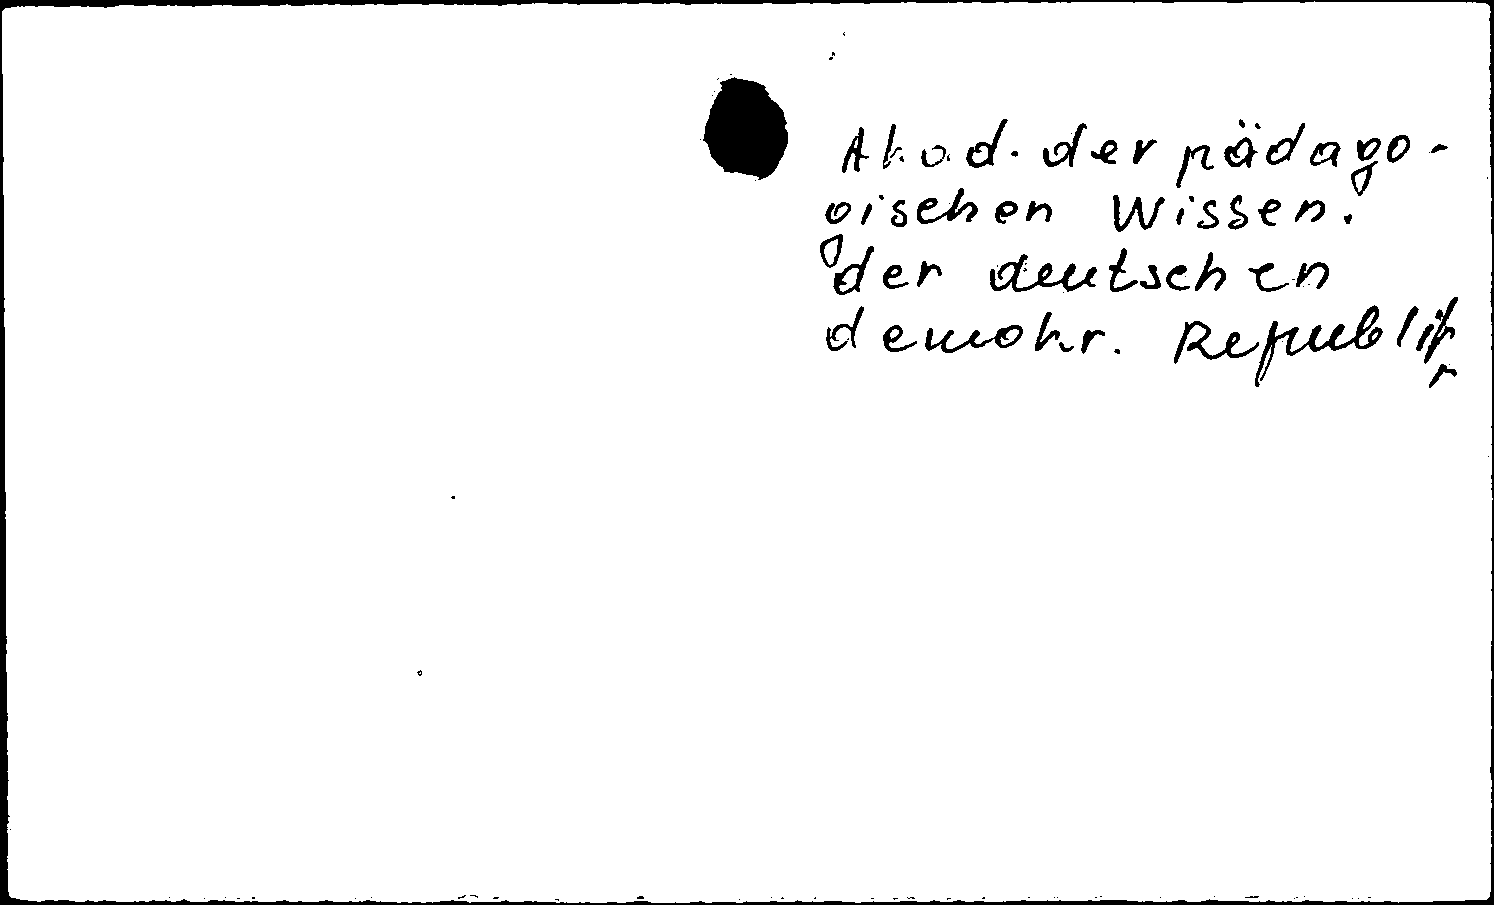 Akad. der pädago-
gischen Wissen.
der deutschen
demokr. Republik